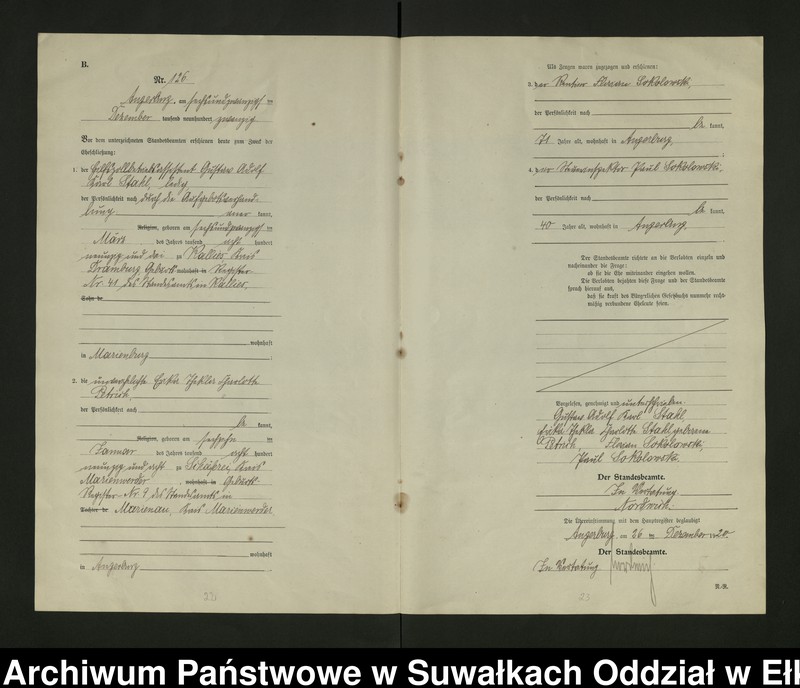 B.
Nr. 126
Angerburg, am sechsundzwanzigsten
Dezember tausend neunhundert zwanzig
Vor dem unterzeichneten Standesbeamten erschienen heute zum Zweck der
Eheschließung:
1. der Hilfszollbetriebsassistent Gustav Adolf
Karl Stahl, ledig
der Persönlichkeit nach durch die Aufgebotsverhand-
lung kannt,
Religion, geboren am sechsundzwanzigsten
März des Jahres tausend acht hundert
neunzig und drei zu Kallies Kreis
Dramburg Geburts wohnhaft in Register
Nr. 41 des Standesamts in Kallies,
Sohn de
wohnhaft
in Marienburg ;
2. die unverehelichte Thekla Charlotte
Petrich,
der Persönlichkeit nach
be kannt,
Religion, geboren am
Januar des Jahres tausend acht hundert
neunzig und acht zu Schäferei, Kreis
Marienwerder, wohnhaft in Geburts-
Register Nr. 9 des Standesamts in
Tochter de Marienau, Kreis Marienwerder
wohnhaft
in Angerburg .
23
Als Zeugen waren zugezogen und erschienen:
3. der Rentier Florian Sokolowski,
der Persönlichkeit nach
be kannt,
71 Jahre alt, wohnhaft in Angerburg
;
4. der Paul Sokolowski,
der Persönlichkeit nach
be kannt,
40 Jahre alt, wohnhaft in Angerburg.
Der Standesbeamte richtete an die Verlobten einzeln und
nacheinander die Frage:
ob sie die Ehe miteinander eingehen wollen.
Die Verlobten bejahten diese Frage und der Standesbeamte
sprach hierauf aus,
daß sie kraft des Bürgerlichen Gesetzbuchs nunmehr recht-
mäßig verbundene Eheleute seien.
Vorgelesen, genehmigt und unterschrieben
Gustav Adolf Karl Stahl,
Thekla Charlotte Stahl geborene
Petrich, Florian Sokolowski,
Paul Sokolowski.
Der Standesbeamte.
In Vertretung
Die Übereinstimmung mit dem Hauptregister beglaubigt
Angerburg, am 26 ten Dezember 1920.
Der Standesbeamte.
In Vertretung
N.-R.
23
Archiwum Państwowe w Suwałkach Oddział w Ełk